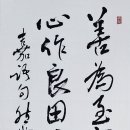 善為至寶
心作良田
嘉語句